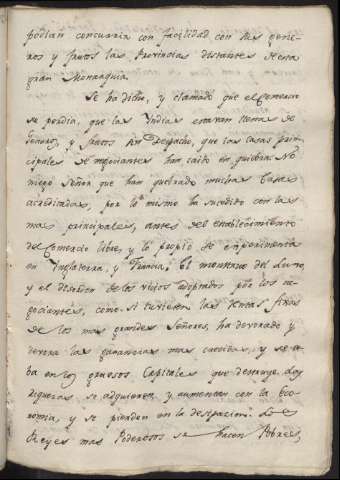 podian concurrir con facilidad con sus gene-
ros y frutos las Provincias distantes de esta
gran Monarquia.
Se ha dicho, y clamado que el Comercio
se perdia, que las Yndias estavan llenas de
generos, y frutos sin Despacho, que las casas prin-
cipales de negociantes han caido en quiebras. No
niego Señor que han quebrado muchas Casas
acreditadas, por lo mismo ha sucedido con las
mas principales, antes del establecimiento
del Comercio libre, y lo propio se experimenta
en Ynglaterra, y Francia. El monstruo del Luxo,
y el desorden de los vicios adoptados por los ne-
gociantes, como si tuviesen las Rentas fixas
de los mas grandes Señores, ha devorado y
devora las ganancias mas crecidas, y se ce-
ba en los gruesos Capitales que destruye. Las
riquezas se adquieren, y aumentan con la Eco-
nomia, y se pierden en la disipacion. Los
Reyes mas Poderosos se hacen Pobres,